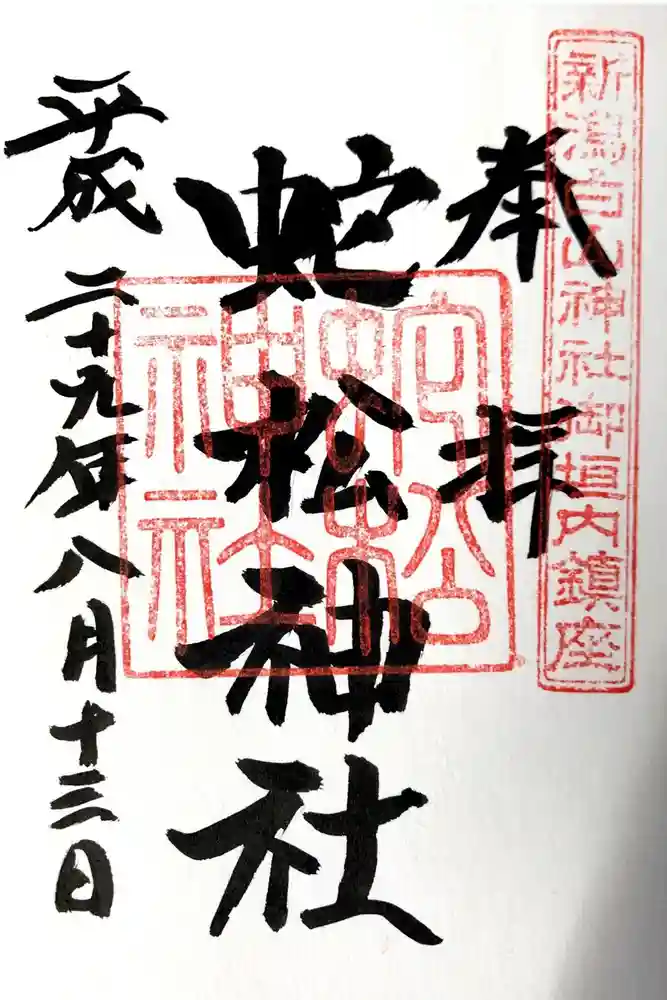 新潟白山神社御垣内鎮座
奉拝
蛇松神社
蛇松
神社
平成二十九年八月十三日